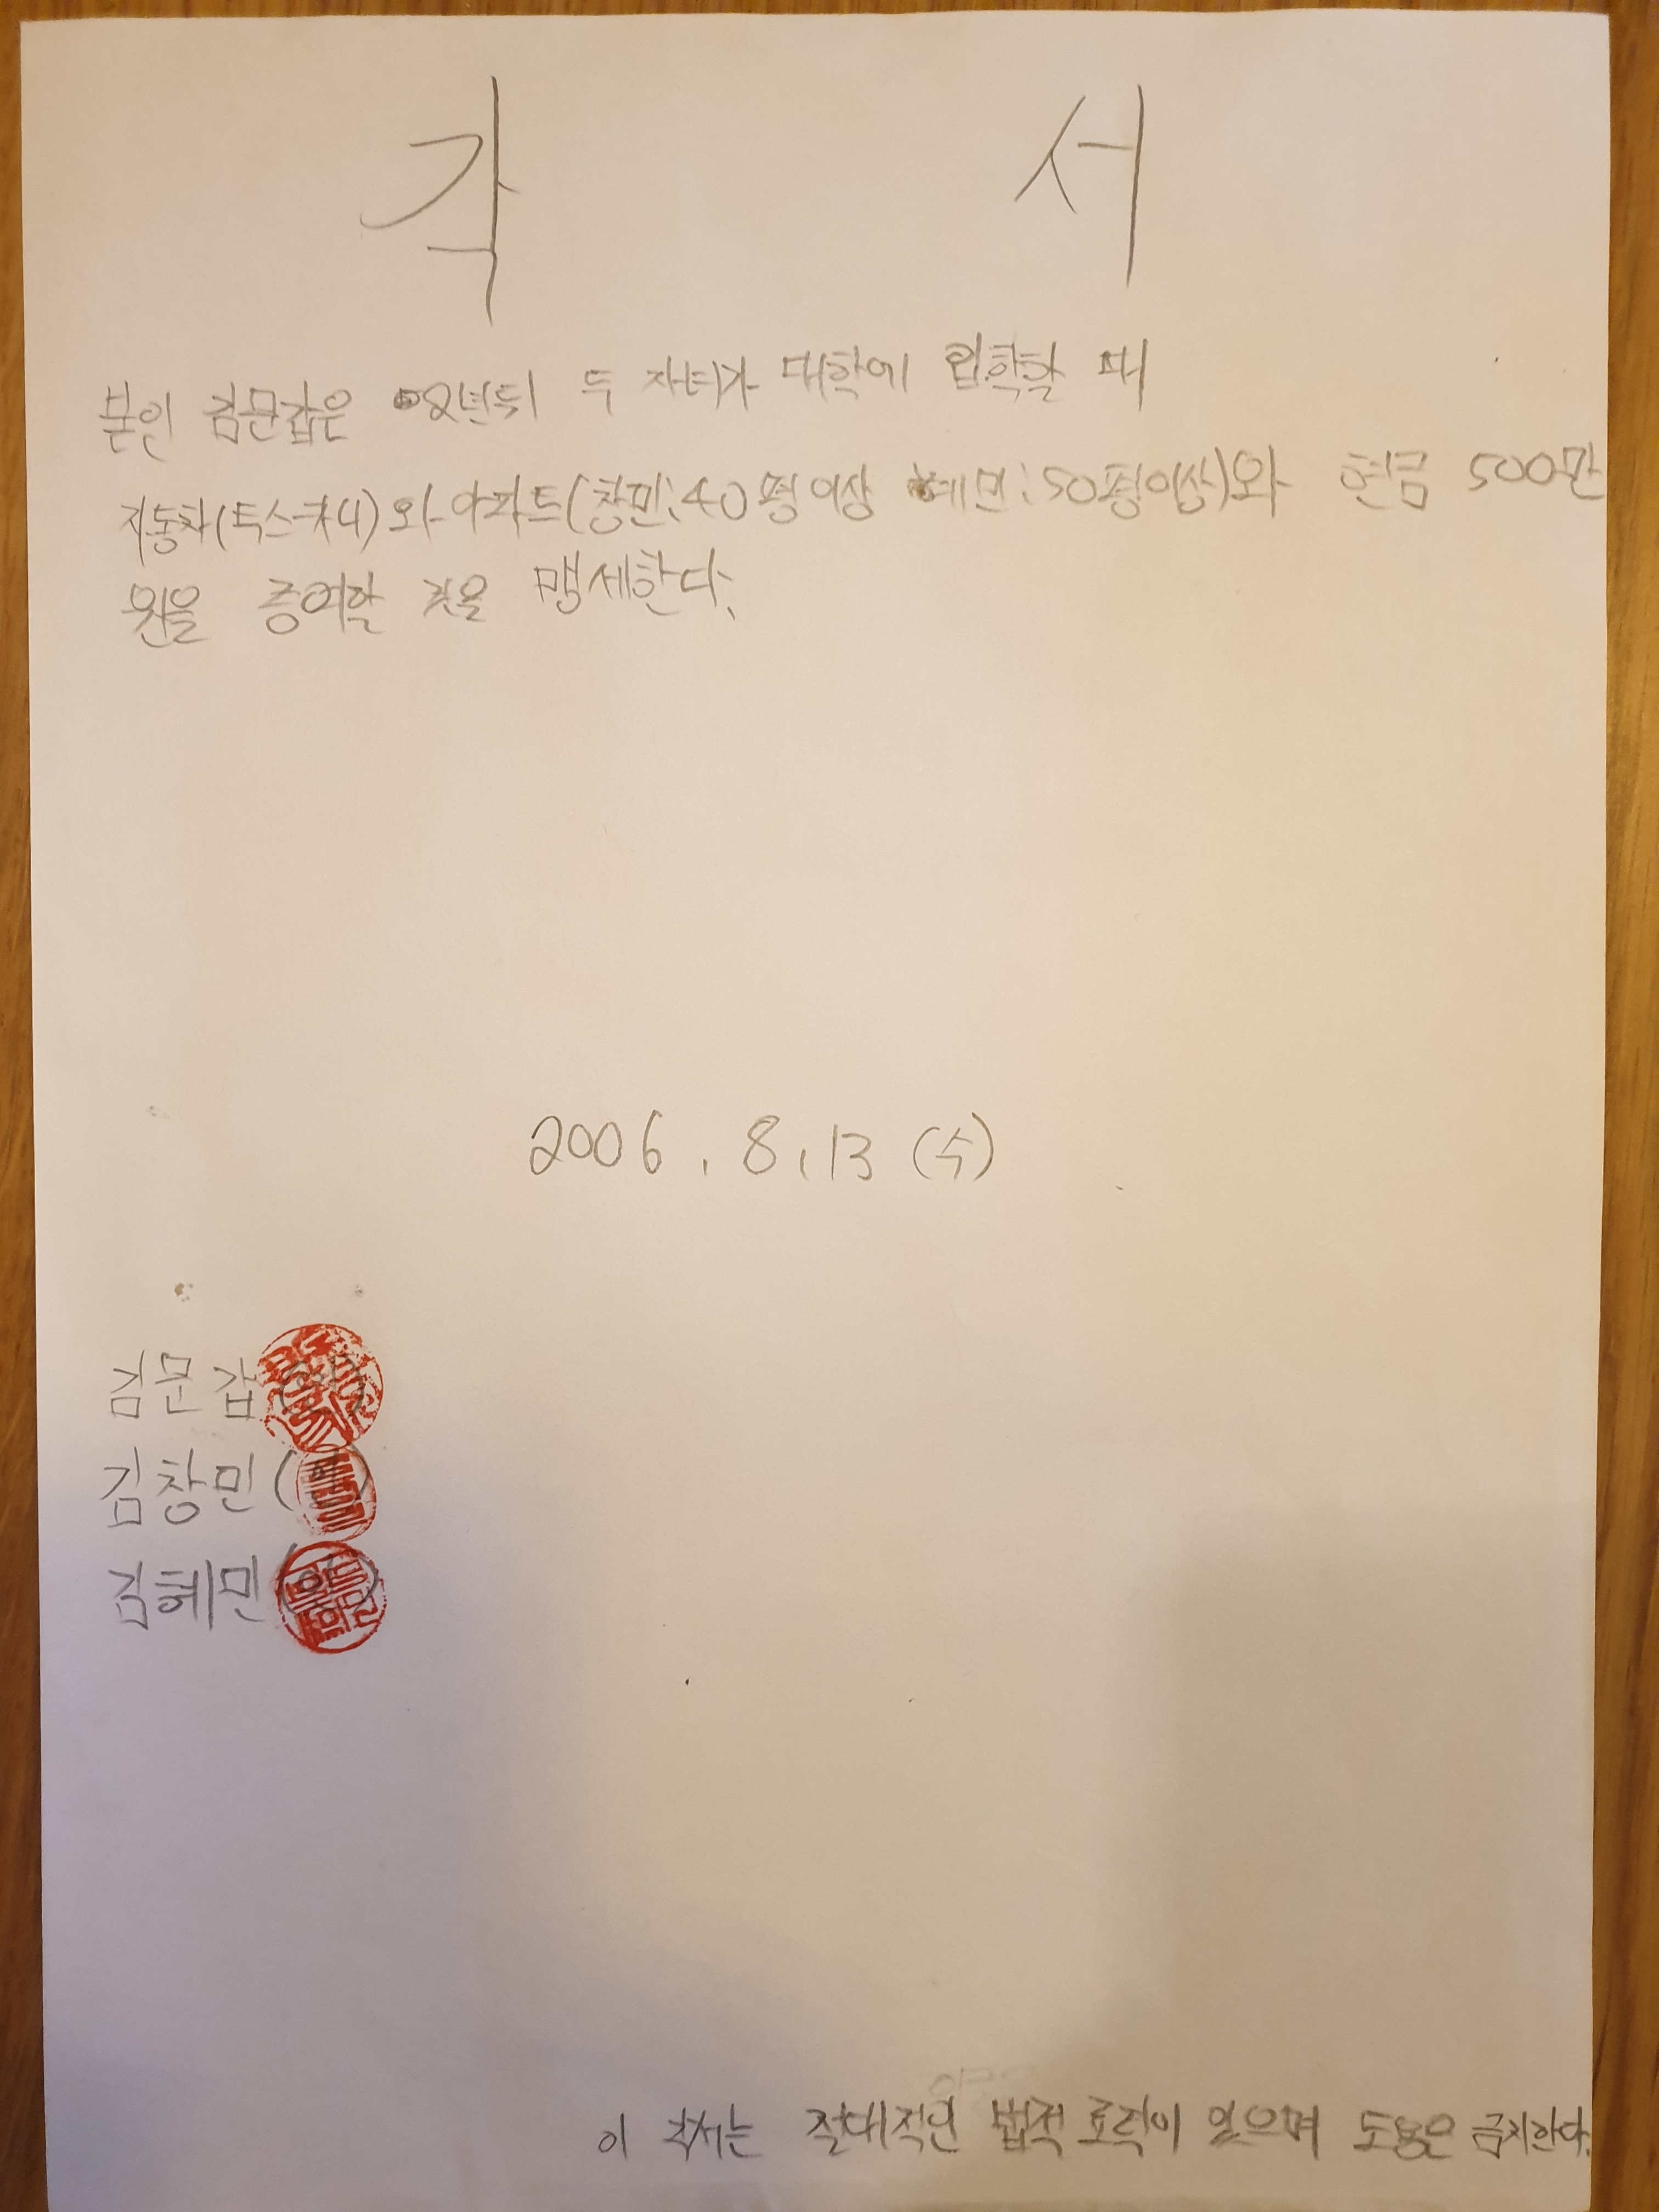 각 서
본인 김문갑은 8년뒤 두 자녀가 대학에 입학할 때
자동차(투스카니)와 아파트(창민:40평이상 혜민:50평이상)와 현금 500만
원을 증여할 것을 맹세한다.
2006. 8. 13 (수)
김문갑
김창민(
김혜민(인)
이 각서는 절대적인 법적 효력이 있으며 도용은 금지한다.